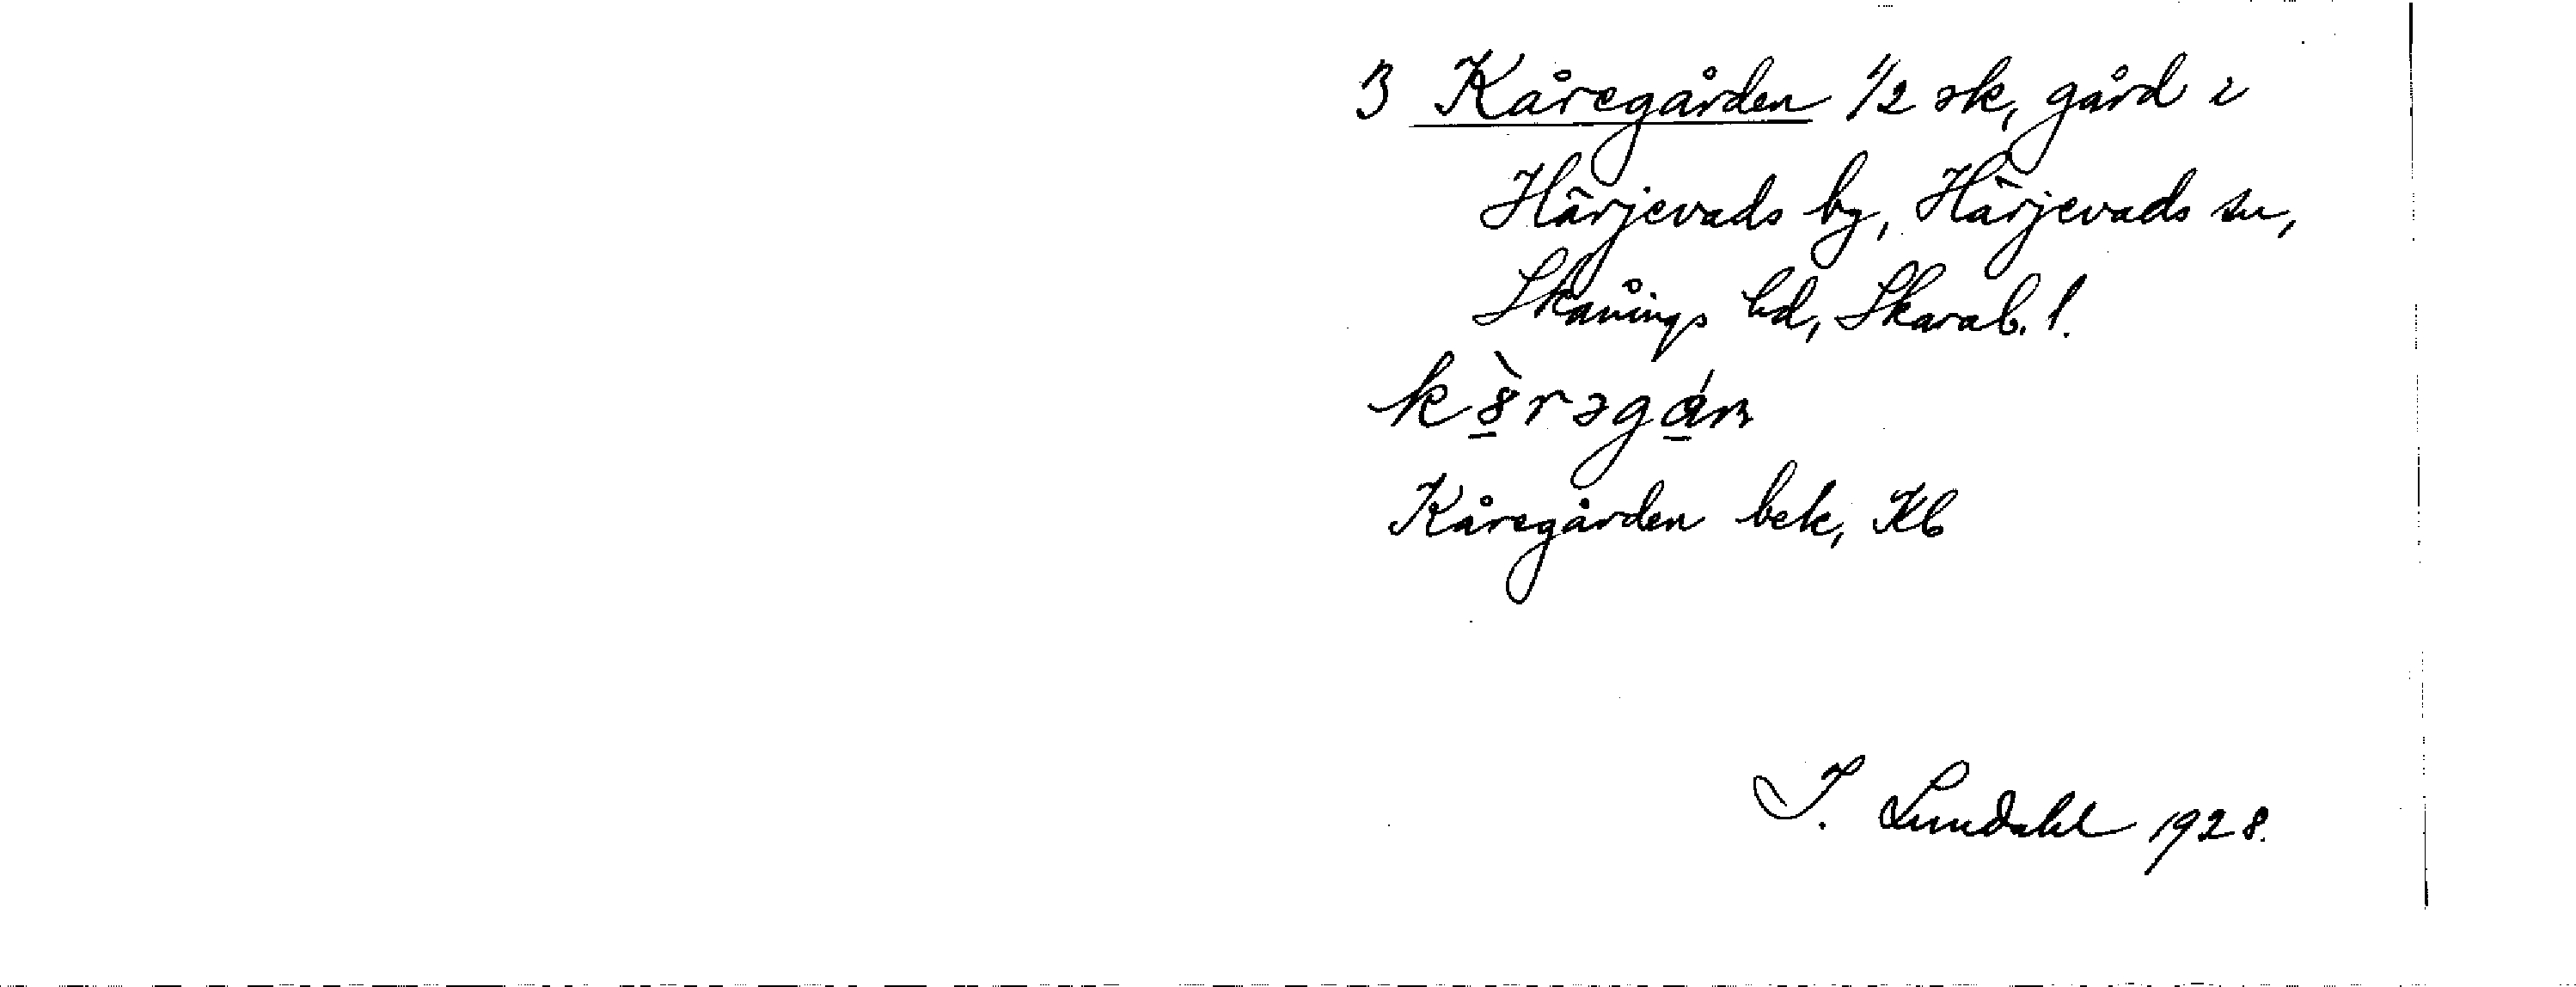 3 Kåregården 1/2 sk, gård i
Härjevads by, Härjevads sn,
Skånings hd, Skarab. l.
k8̠̀rəgá̠ɴ
Kåregården bek, Kb
I. Lundahl 1928.